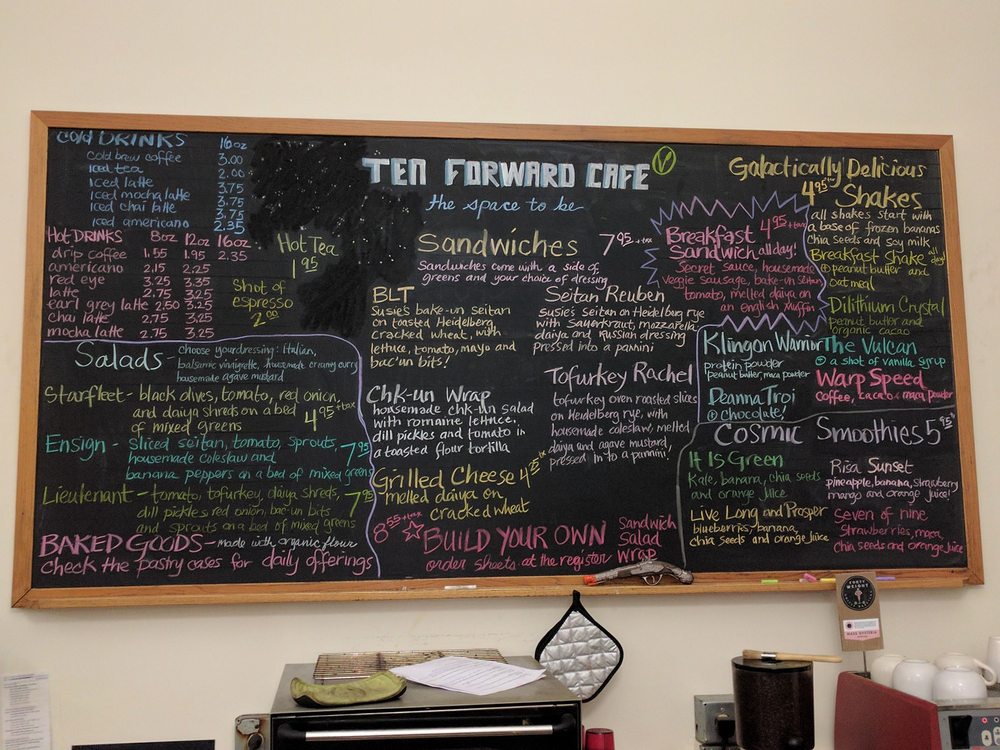 Cold DRINKS 16oz
cold brew coffee 3.00
iced tea 2.00
iced latte 3.75
iced mocha latte 3.75
iced chai latte 3.75
iced americano 2.35
HOT DRINKS 8oz 12oz 16oz
drip coffee 1.55 1.95 2.35
americano 2.15 2.25
red eye 3.25 3.35
latte 2.75 3.25
earl grey latte 2.50 3.25
chai latte 2.75 3.25
mocha latte 2.75 3.25
Hot Tea
1.95
Shot of
espresso
2.00
Salads - choose your dressing: Italian,
balsamic vinaigrette, housemade creamy curry
housemade agave mustard
Starfleet - black olives, tomato, red onion,
and daiya shreds on a bed
of mixed greens 4.95 + tax
Ensign - sliced seitan, tomato, sprouts,
housemade coleslaw and 7.95
banana peppers on a bed of mixed greens
Lieutenant - tomato, tofurkey, daiya shreds,
dill pickles, red onion, bac-un bits 7.95
and sprouts on a bed of mixed greens
BAKED GOODS - made with organic flour
check the pastry cases for daily offerings
TEN FORWARD CAFE V
the space to be
Sandwiches 7.95 + tax
Sandwiches come with a side of
greens and your choice of dressing
BLT
Susie's bake-un seitan
on toasted Heidelberg
cracked wheat, with
lettuce, tomato, mayo and
bac'un bits!
Chk-un Wrap
housemade chk-un salad
with romaine lettuce,
dill pickles and tomato in
a toasted flour tortilla
Grilled Cheese 4.25 tx
melted daiya on
cracked wheat
Seitan Reuben
Susie's seitan on Heidelbug rye
with sauerkraut, mozzarella
daiya and Russian dressing
pressed into a pannini
Tofurkey Rachel
tofurkey oven roasted slices
on Heidelberg rye, with
housemade coleslaw, melted
daiya and agave mustard,
pressed in to a pannini!
8.55 + tax BUILD YOUR OWN Sandwich
Salad
order sheets at the register wrap
Breakfast 4.95 + tax
Sandwich all day!
Secret sauce, housemade
veggie sausage, bake-un seitan
tomato, melted daiya on
an english muffin
Galactically Delicious
4.95 Shakes
all shakes start with
a base of frozen bananas
chia seeds and soy milk
Breakfast Shake all day!
peanut butter and
oatmeal
Dilithium Crystal
peanut butter and
organic cacao
Klingon Warrior
protein powder
peanut butter, maca powder
Deanna Troi
chocolate!
The Vulcan
a shot of vanilla syrup
Warp Speed
coffee, cacao + maca powder
Cosmic Smoothies 5.95
It Is Green
Kale, banana, chia seeds
and orange juice
Live Long and Prosper
blueberries, banana,
chia seeds and orange juice
Risa Sunset
pineapple, banana, strawberry
mango and orange juice!
Seven of nine
strawberries, maca,
chia seeds and orange juice
FORTY
WEIGHT